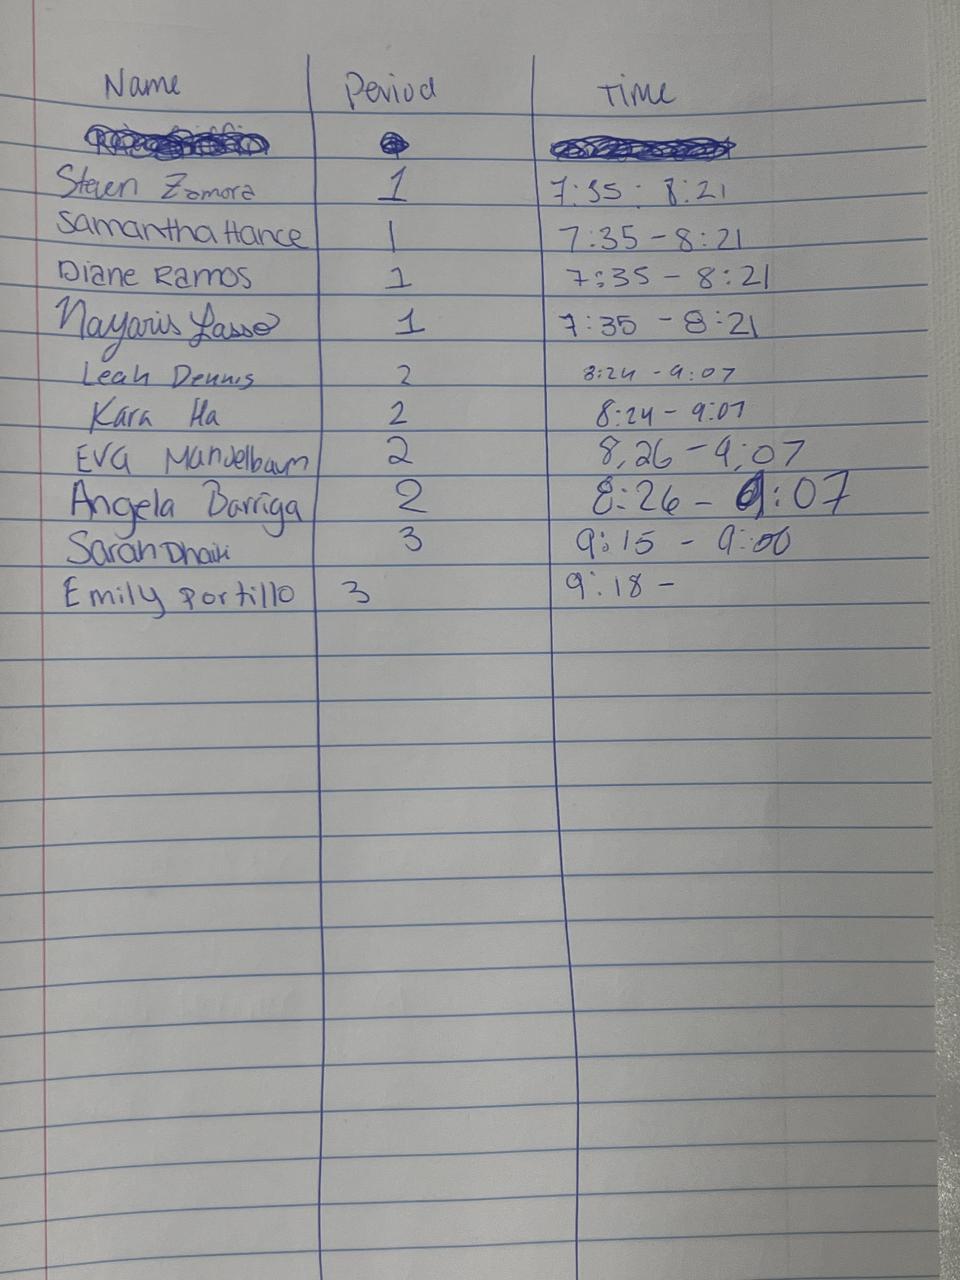 Name Period Time
Steven Zamora 1 7:35 - 8:21
Samantha Hance 1 7:35 - 8:21
Diane Ramos 1 7:35 - 8:21
Nayaris Lasso 1 7:35 - 8:21
Leah Dennis 2 8:24 - 9:07
Kara Ha 2 8:24 - 9:07
Eva Mandelbaum 2 8:26 - 9:07
Angela Barriga 2 8:26 - 9:07
Sarah 3 9:15 - 9:00
Emily Portillo 3 9:18 -